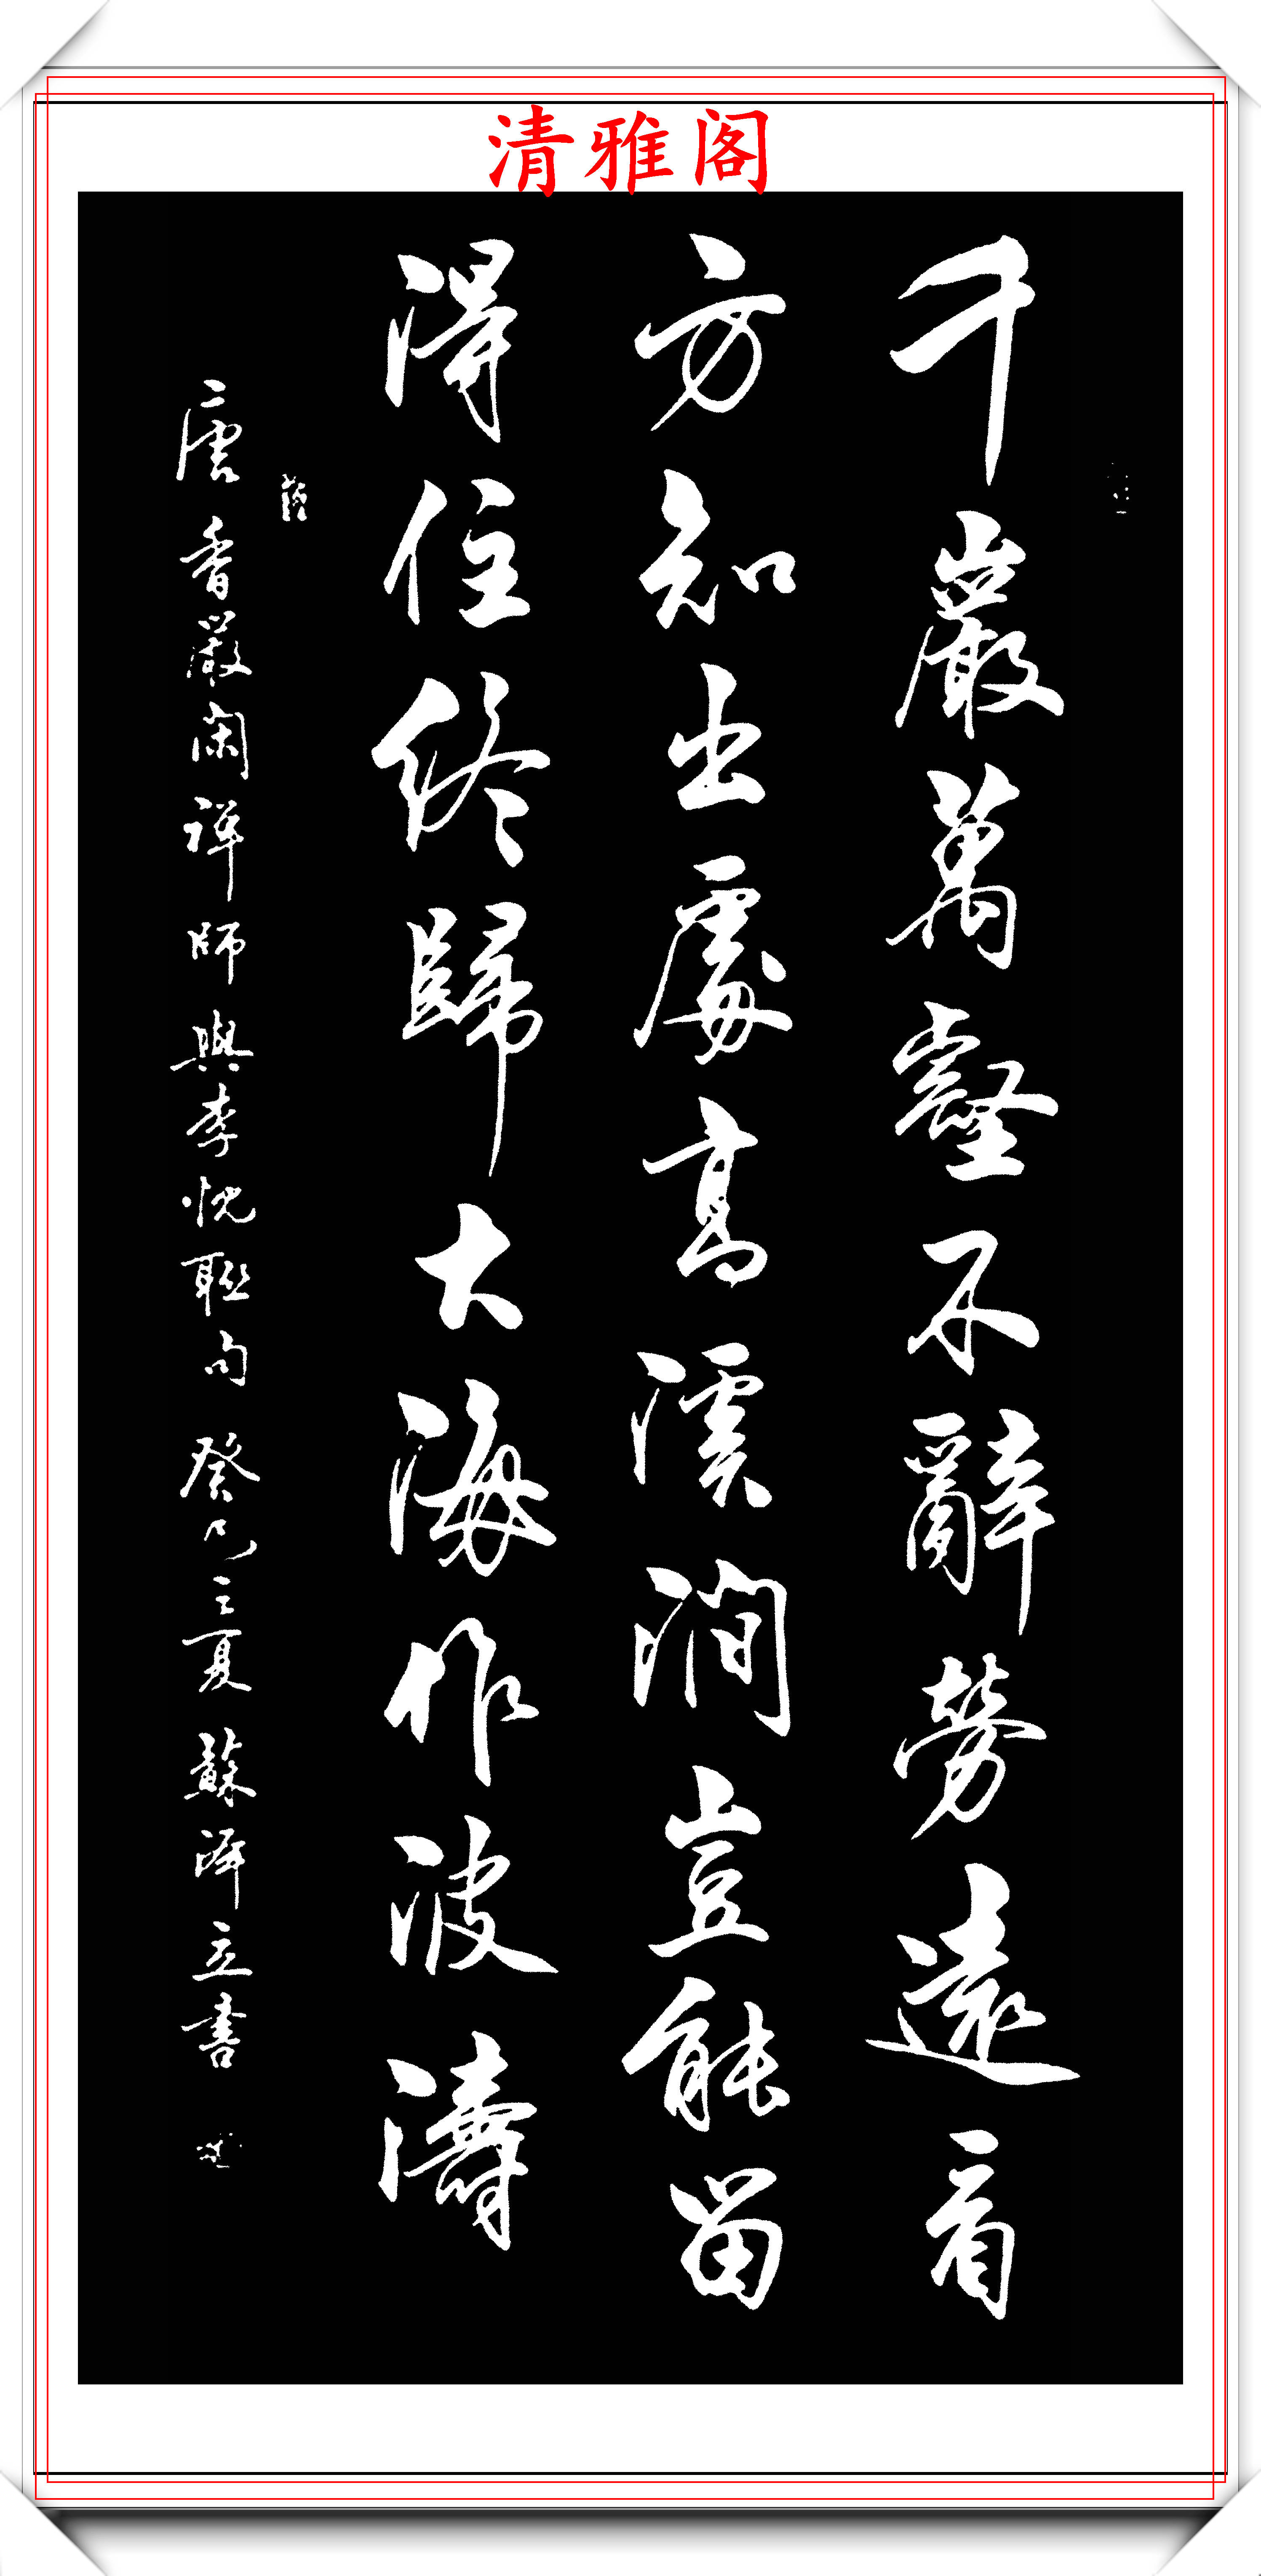 清雅阁
千巖萬壑不辭勞遠看
方知出處高溪澗豈能留
得住終歸大海作波濤
唐香嚴閑禪師與李忱聯句 癸巳之夏 蘇澤立書